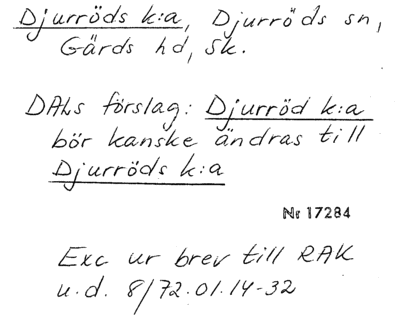 Djurröds k:a, Djurröds sn,
Gärds hd, Sk.
DALs förslag: Djurröd k:a
bör kanske ändras till
Djurröds k:a
Nr 17284
Exc ur brev till RAK
u.d. 8/72.01.14-32